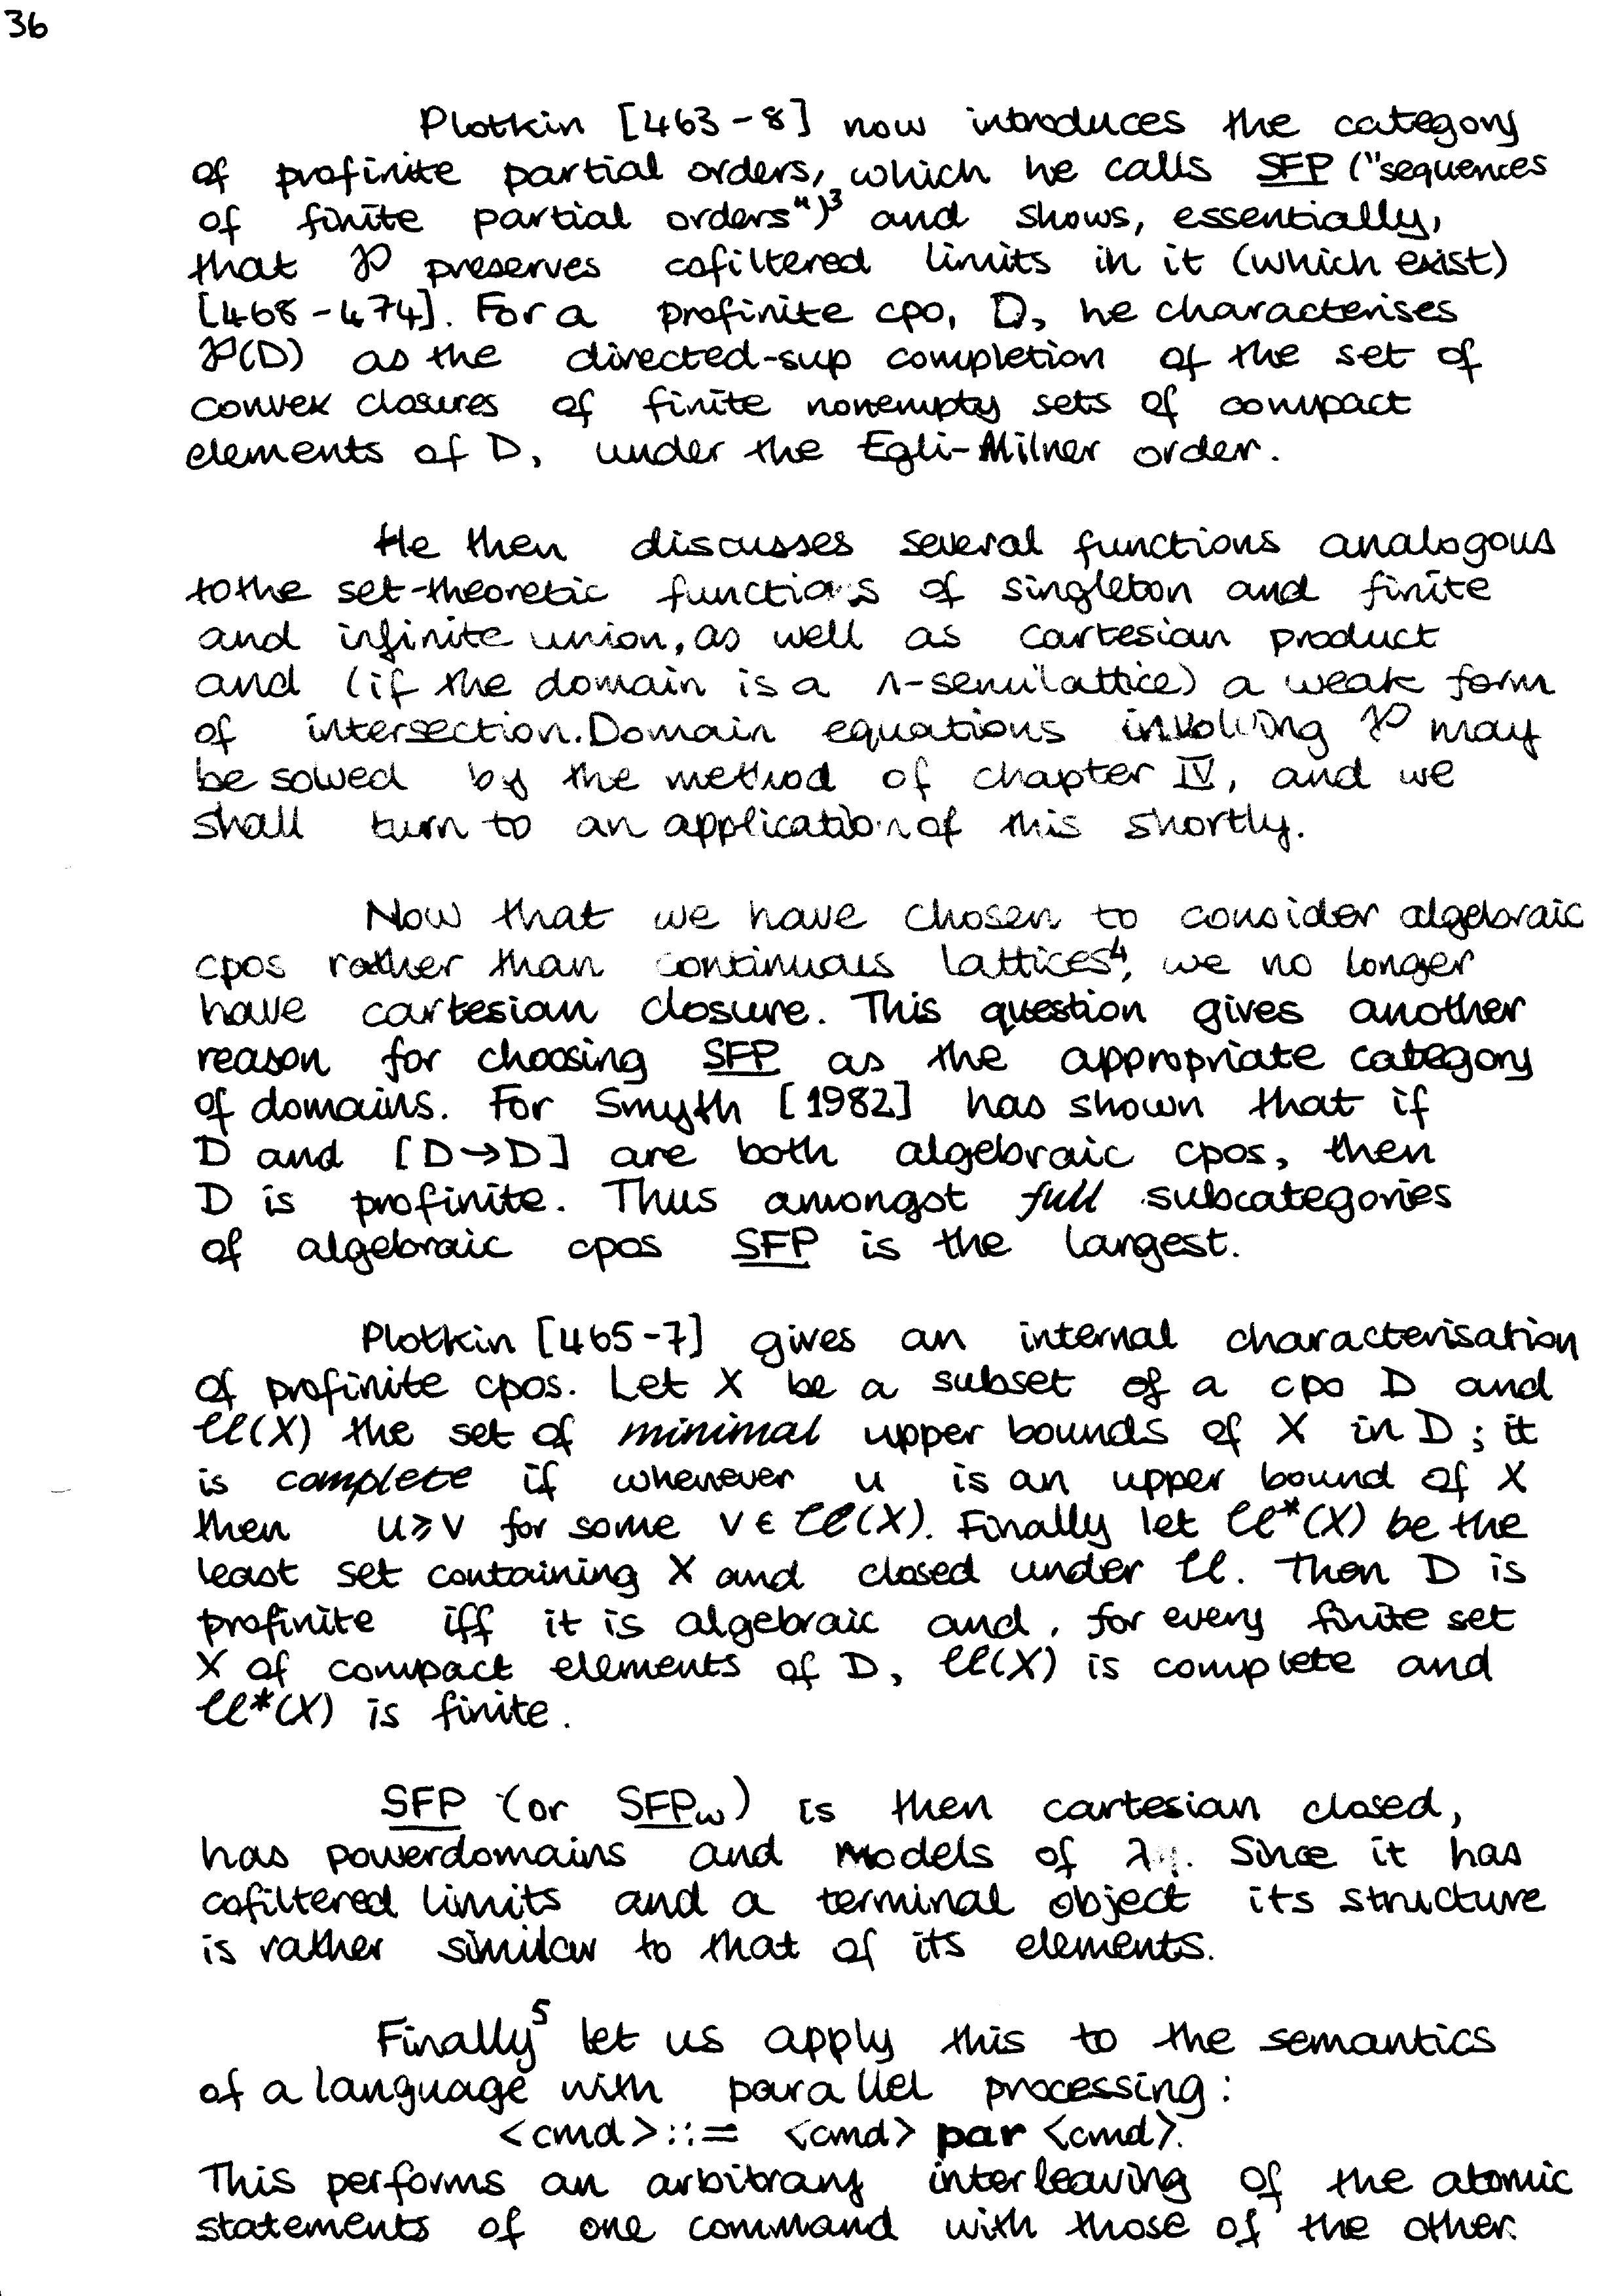 36
Plotkin [463-8] now introduces the category
of profinite partial orders, which he calls SFP ("sequences
of finite partial orders")³ and shows, essentially,
that 𝒫 preserves cofiltered limits in it (which exist)
[468-474]. For a profinite cpo, D, he characterises
𝒫(D) as the directed-sup completion of the set of
convex closures of finite nonempty sets of compact
elements of D, under the Egli-Milner order.
He then discusses several functions analogous
to the set-theoretic functions of singleton and finite
and infinite union, as well as cartesian product
and (if the domain is a ∧-semilattice) a weak form
of intersection. Domain equations involving 𝒫 may
be solved by the method of chapter IV, and we
shall turn to an application of this shortly.
Now that we have chosen to consider algebraic
cpos rather than continuous lattices⁴, we no longer
have cartesian closure. This question gives another
reason for choosing SFP as the appropriate category
of domains. For Smyth [1982] has shown that if
D and [D→D] are both algebraic cpos, then
D is profinite. Thus amongst full subcategories
of algebraic cpos SFP is the largest.
Plotkin [465-7] gives an internal characterisation
of profinite cpos. Let X be a subset of a cpo D and
𝒰(X) the set of minimal upper bounds of X in D; it
is complete if whenever u is an upper bound of X
then u⩾v for some v ∈ 𝒰(X). Finally let 𝒰*(X) be the
least set containing X and closed under 𝒰. Then D is
profinite iff it is algebraic and, for every finite set
X of compact elements of D, 𝒰(X) is complete and
𝒰*(X) is finite.
SFP (or SFPω) is then cartesian closed,
has powerdomains and models of λ. Since it has
cofiltered limits and a terminal object its structure
is rather similar to that of its elements.
Finally⁵ let us apply this to the semantics
of a language with parallel processing:
<cmd>::= <cmd> par <cmd>.
This performs an arbitrary interleaving of the atomic
statements of one command with those of the other.